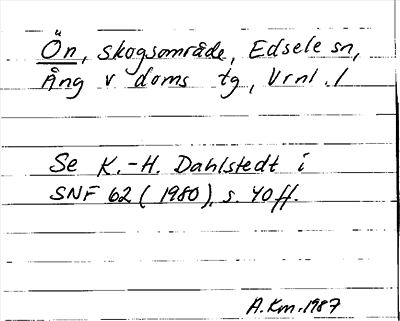 Ön, skogsområde, Edsele sn,
Ång v doms tg, Vrnl./
Se K.-H. Dahlstedt i
SNF 62 (1980), s. 40ff.
A.Km.1987